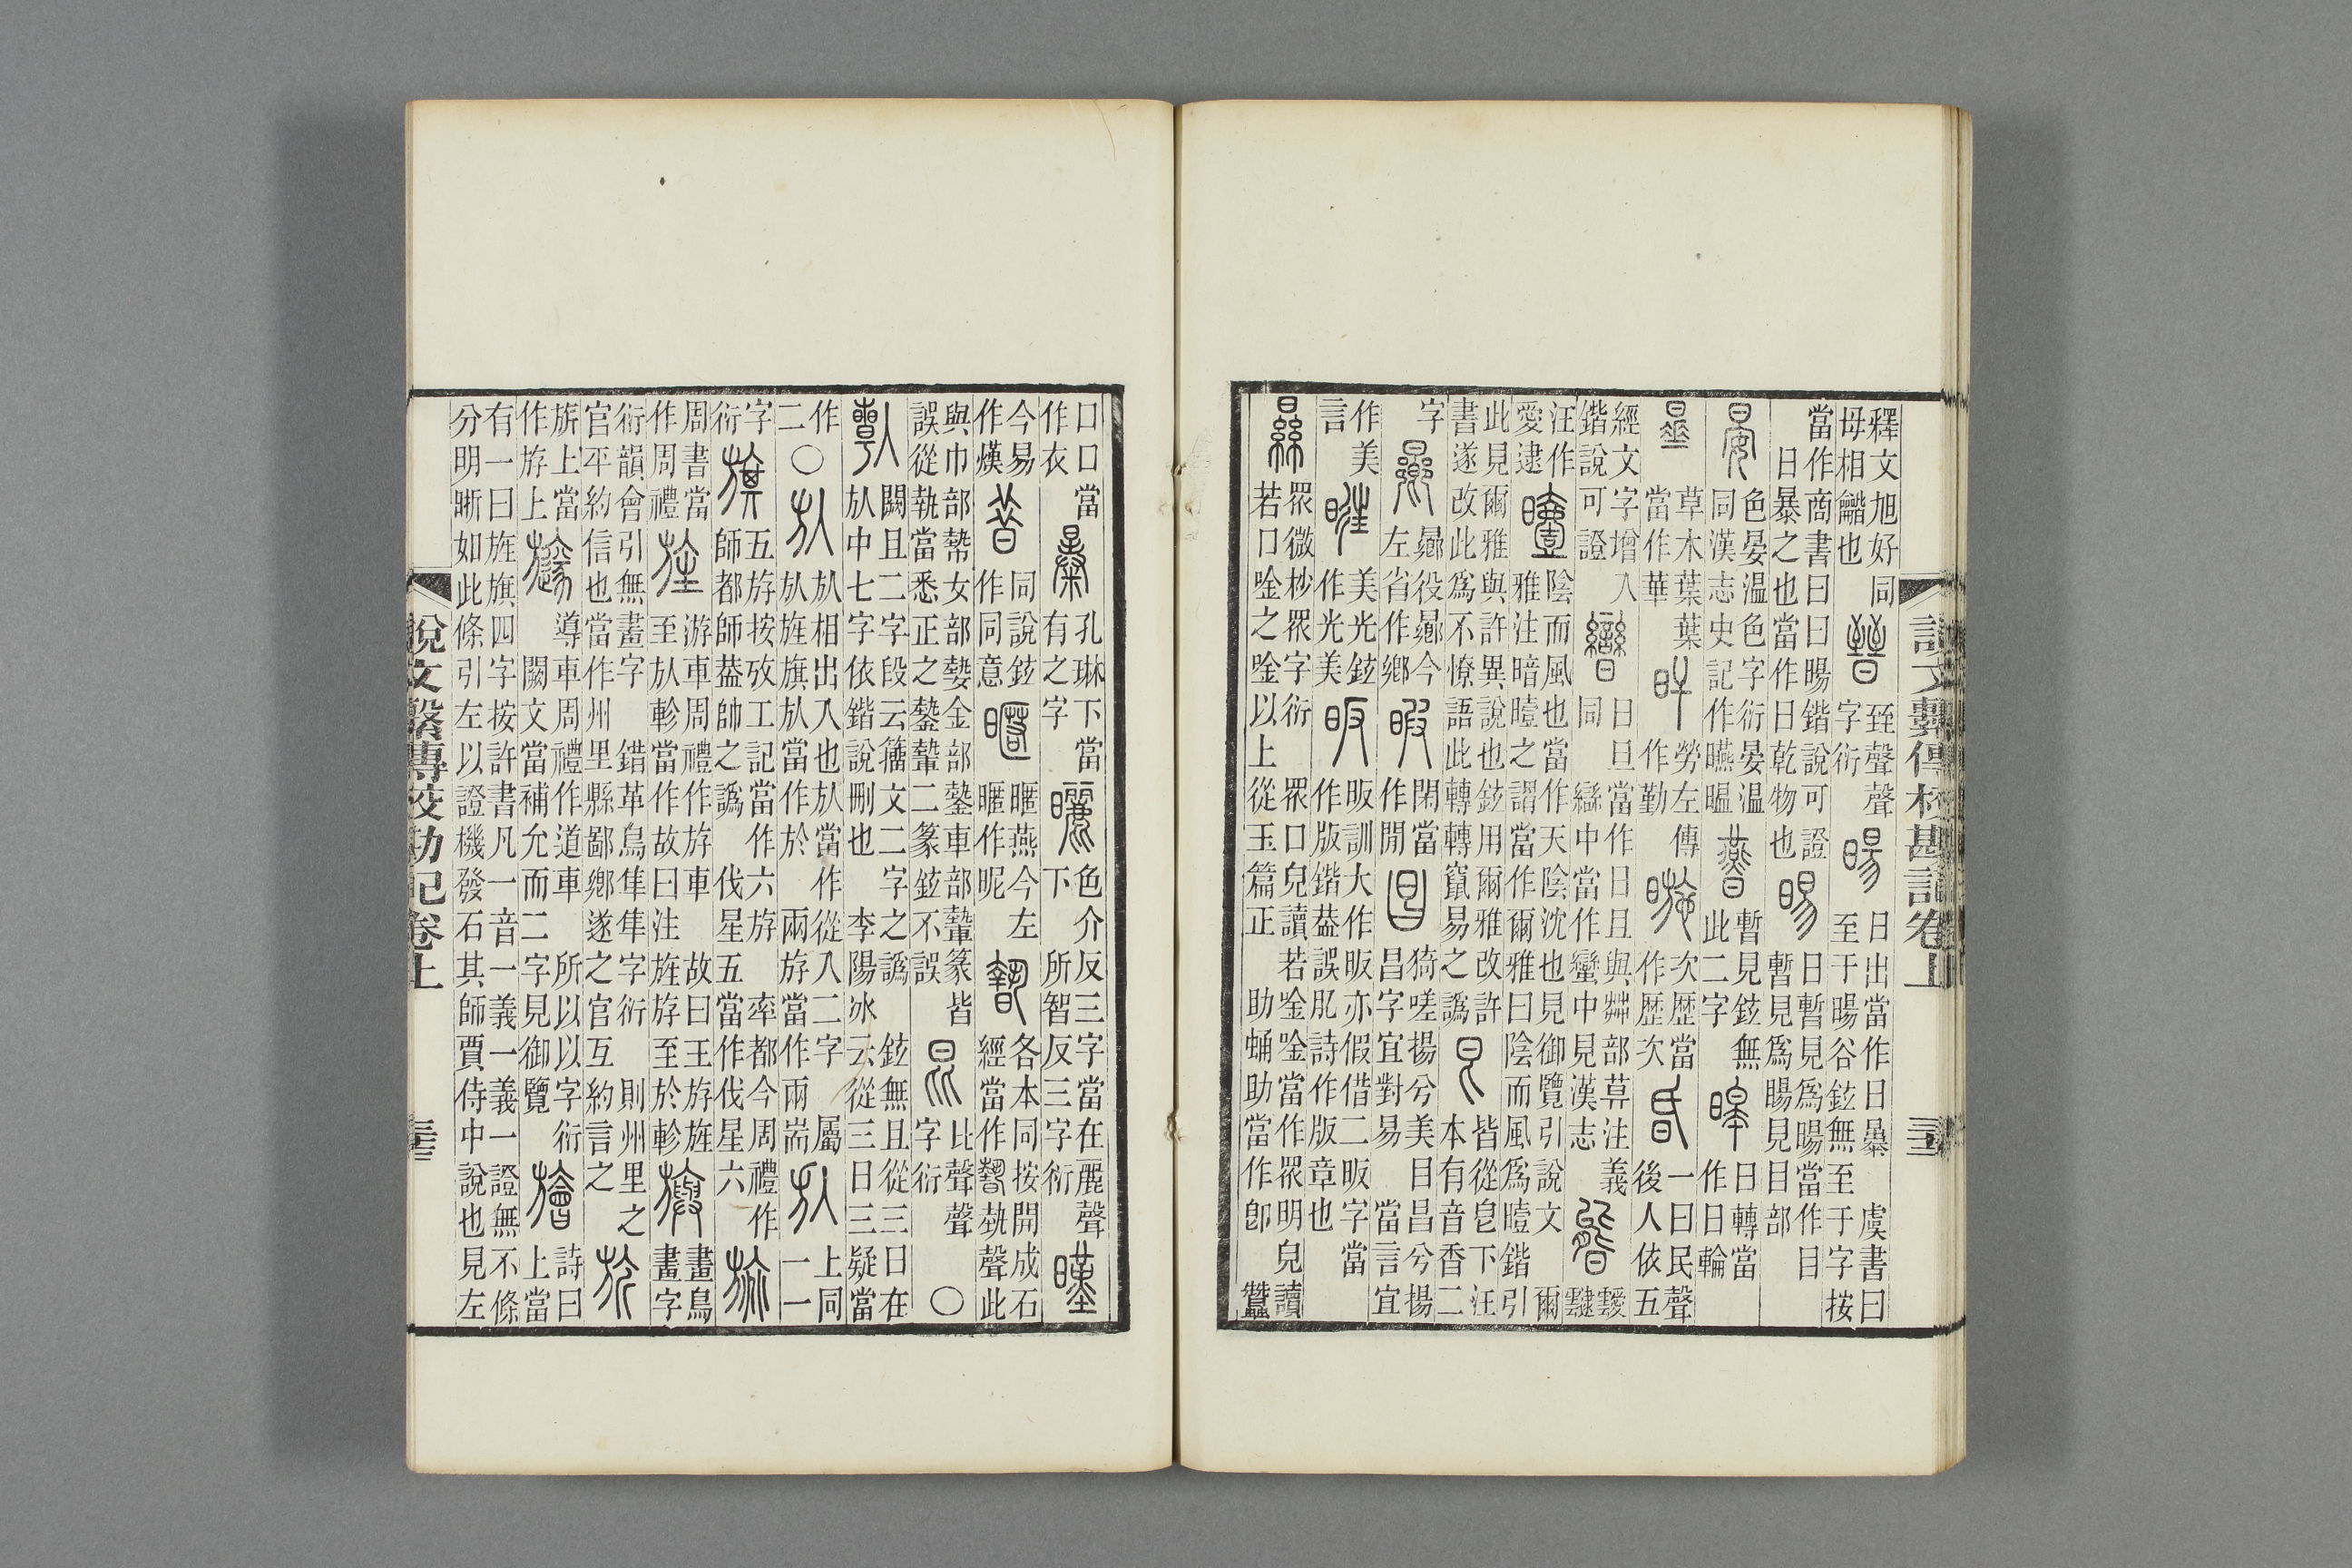 說文繫傳校勘記卷上 三五
釋文旭好同
毋相鸓也
晉
臸聲聲
字衍
暘
日出當作日㬥 虞書曰
至于暘谷鉉無至于字按
當作商書曰曰暘鍇說可證
日暴之也當作日乾物也
日暫見爲暘當作目
暫見爲暘見目部
晏
色晏温色字衍晏温
同漢志史記作曣㬈
暫見鉉無
此二字
日轉當
作日輪
曅
草木葉葉
當作華
旰
勞左傳
作勤
暆
次歷當
作歷次
昏
一曰民聲
後人依五
經文字增入
鍇說可證
曫
日旦當作日且與茻部莽注義
同 䜌中當作蠻中見漢志
靉
靆
汪作
愛逮
曀
陰而風也當作天陰沈也見御覽引說文 爾
雅注暗曀之謂當作爾雅曰陰而風爲曀鍇引
此見爾雅與許異說也鉉用爾雅改許
書遂改此爲不憭語此轉轉竄易之譌
皆從皀下汪
本有音香二
字
曏
曏役曏今
左省作鄉
暇
閑當
作閒
昌
猗嗟揚兮美目昌兮揚
昌字宜對易 當言宜
作美
言
暀
美光鉉
作光美
昄
昄訓大作昄亦假借二昄字當
作版鍇葢誤肊詩作版章也
㬎
眾微杪眾字衍 眾口皃讀若唫唫當作眾明皃讀
若口唫之唫以上從玉篇正 助蛹助當作卽 蠶
口口當
作衣
㬥
孔琳下當
有之字
曬
色介反三字當在麗聲
下 所智反三字衍
暵
今易
作熯
昔
同說鉉
作同意
暱
暱燕今左
暱作昵
暬
各本同按開成石
經當作暬埶聲此
與巾部 女部 金部 車部 篆皆
誤從執當悉正之 二篆鉉不誤
昆
比聲聲
字衍
○
闕且二字段云籒文二字之譌 鉉無且從三日在
㫃中七字依鍇說刪也 李陽冰云從三日三疑當
作
二
○
㫃
㫃相出入也㫃當作從入二字 屬
㫃旌旗㫃當作於 兩斿當作兩耑
㫃
上同
一一
字
衍
旗
五斿按攷工記當作六斿 率都今周禮作
師都師葢帥之譌 伐星五當作伐星六
周書當
作周禮
旌
游車周禮作斿車 故曰王斿旌
至㫃軫當作故曰注旌斿至於軫
旟
畫鳥
畫字
衍韻會引無畫字 錯革鳥隼隼字衍 則州里之
官平約信也當作州里縣鄙鄉遂之官互約言之
旂
旂上當
作斿上
旞
導車周禮作道車 所以以字衍
闕文當補允而二字見御覽
旝
詩曰
上當
有一曰旌旗四字按許書凡一音一義一義一證無不條
分明晰如此條引左以證機發石其師賈侍中說也見左
說文繫傳校勘記卷上